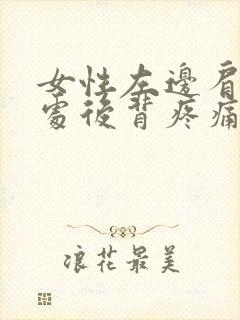 女性左邊肩
處後背疼痛
浪花最美